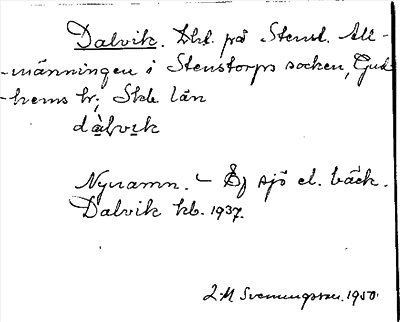 Dalvik. Lht. på Stenst. All-
-männingen i Stenstorps socken, Gud-
-hems hr; Skb. län
dàlvik
Nynamn. – Ej sjö el. bäck.
Dalvik kb. 1937.
L-M Svenungsson. 1950